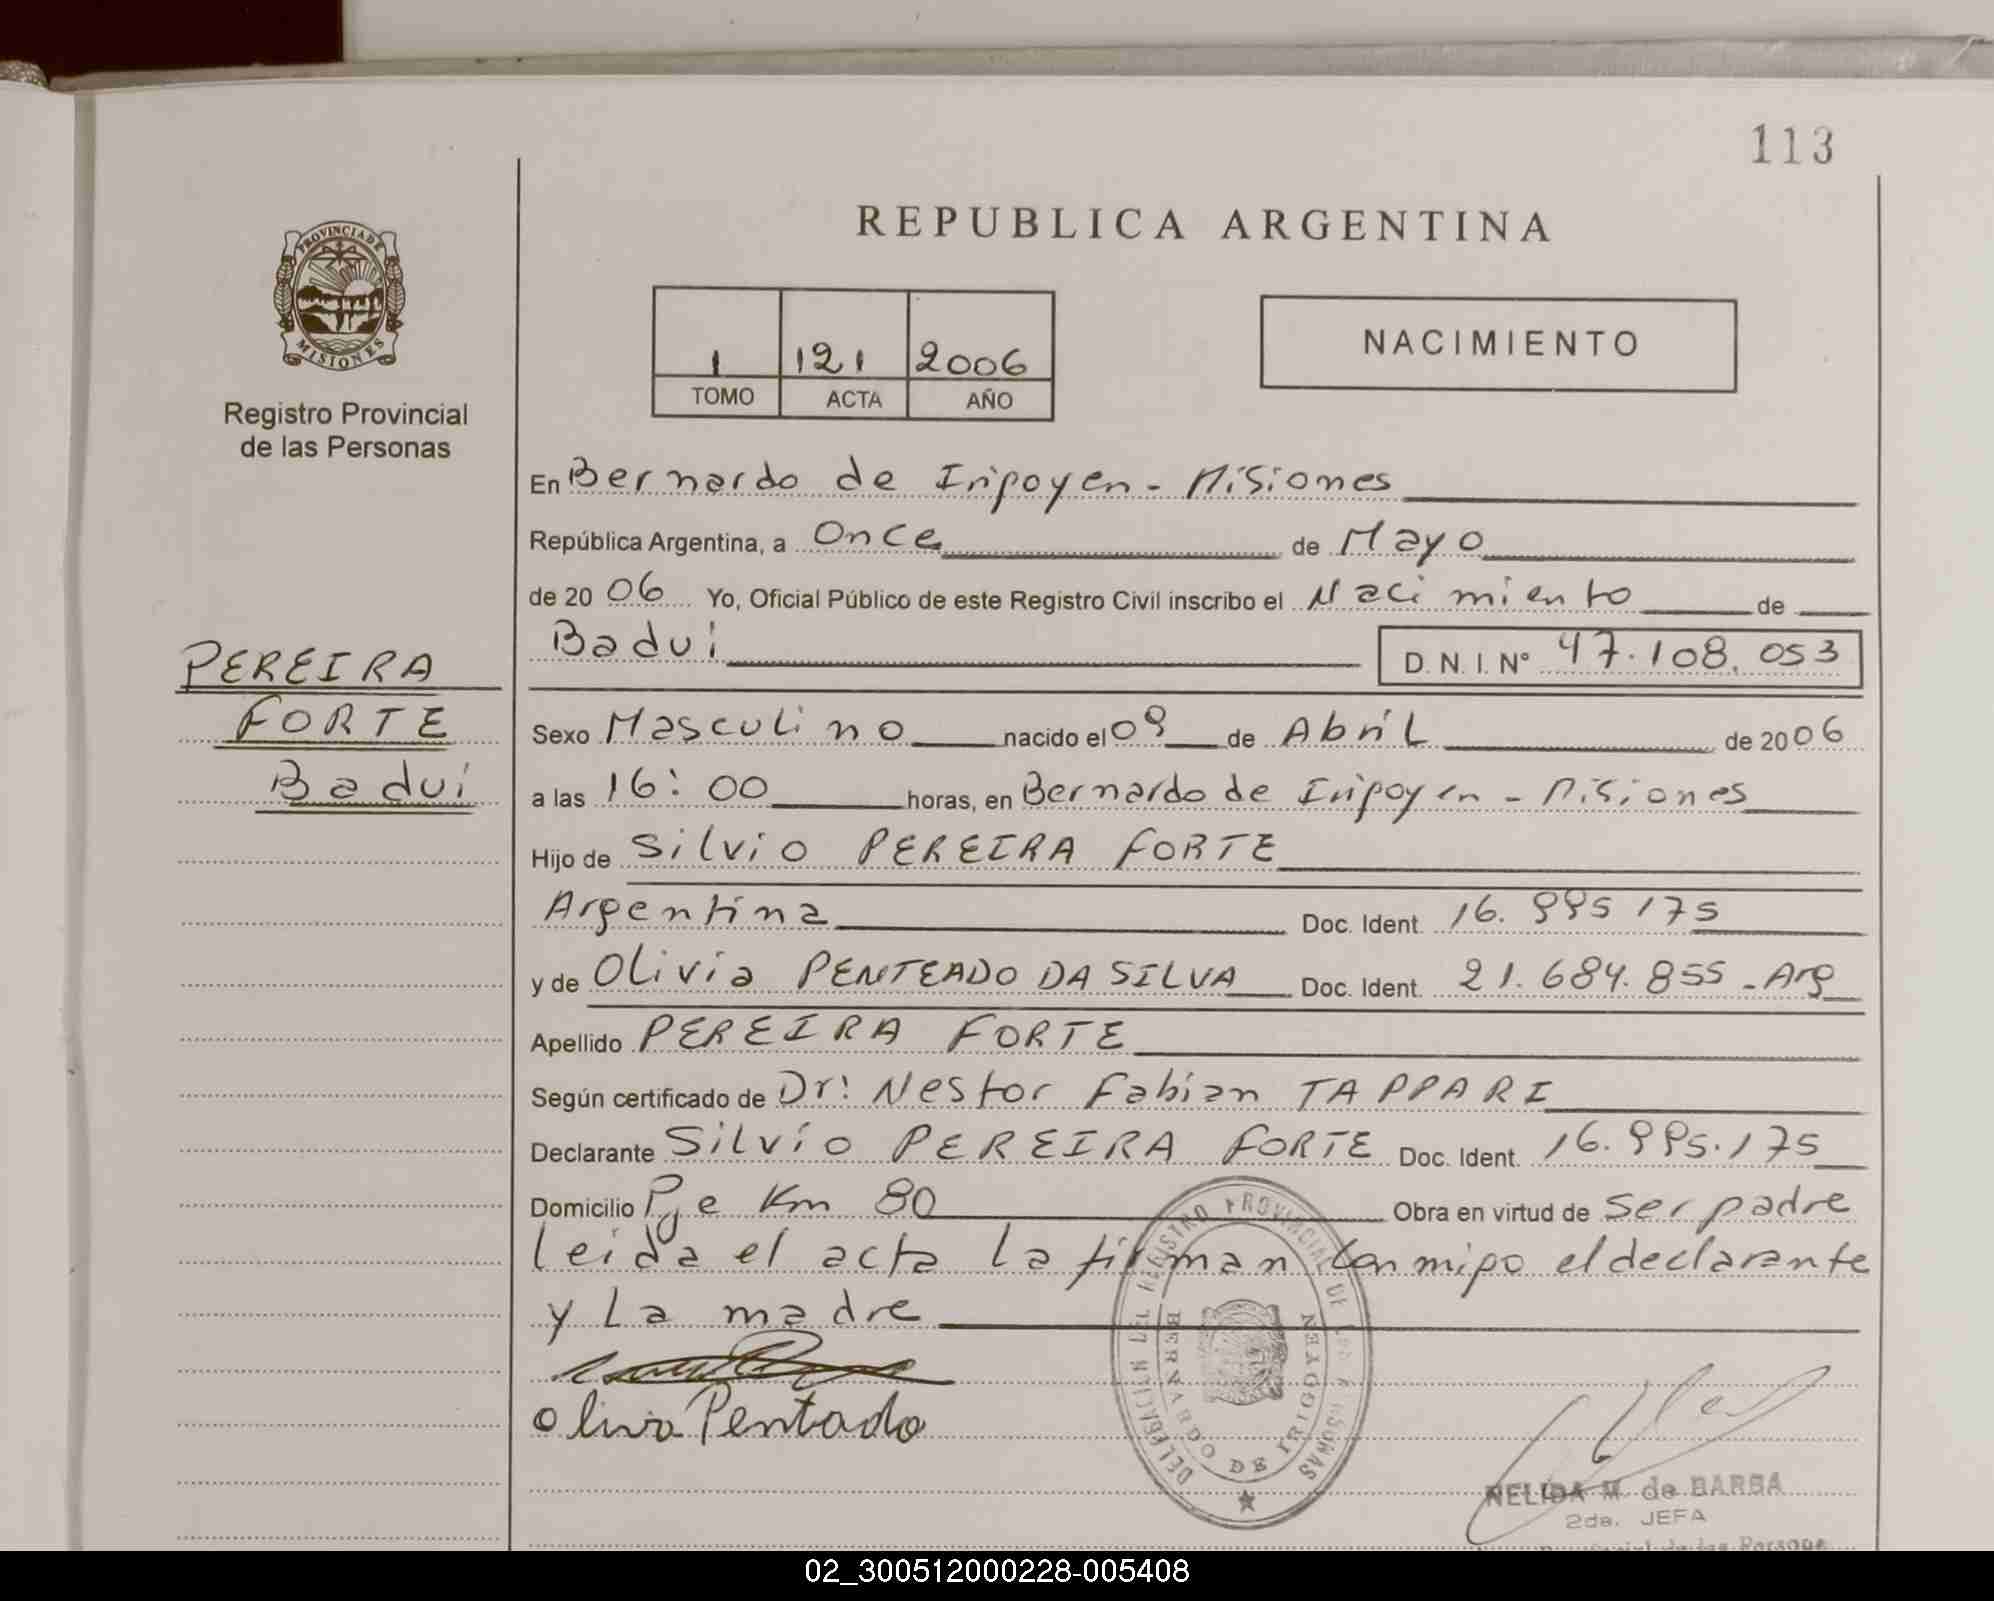 113
REPUBLICA ARGENTINA
PROVINCIA DE MISIONES
Registro Provincial
de las Personas
1 121 2006
TOMO ACTA AÑO
NACIMIENTO
En Bernardo de Iripoyen - Misiones
República Argentina, a Once de Mayo
de 2006 Yo, Oficial Público de este Registro Civil inscribo el Nacimiento de
Badui D.N.I. Nº 47.108.053
PEREIRA
FORTE
Badui
Sexo Masculino nacido el 09 de Abril de 2006
a las 16:00 horas, en Bernardo de Iripoyen - Misiones
Hijo de Silvio PEREIRA FORTE
Argentina Doc. Ident. 16.995 175
y de Olivia PENTEADO DA SILVA Doc. Ident. 21.684.855 - Arg
Apellido PEREIRA FORTE
Según certificado de Dr: Nestor Fabian TAPPARI
Declarante Silvio PEREIRA FORTE Doc. Ident. 16.995.175
Domicilio Pje Km 80 Obra en virtud de ser padre
leida el acta la firman conmigo el declarante
y la madre
Olivia Pentado
DELEGACION DEL REGISTRO PROVINCIAL DE LAS PERSONAS
BERNARDO DE IRIGOYEN
NELIDA M. de BARBA
2da. JEFA
de las Persona
02_300512000228-005408